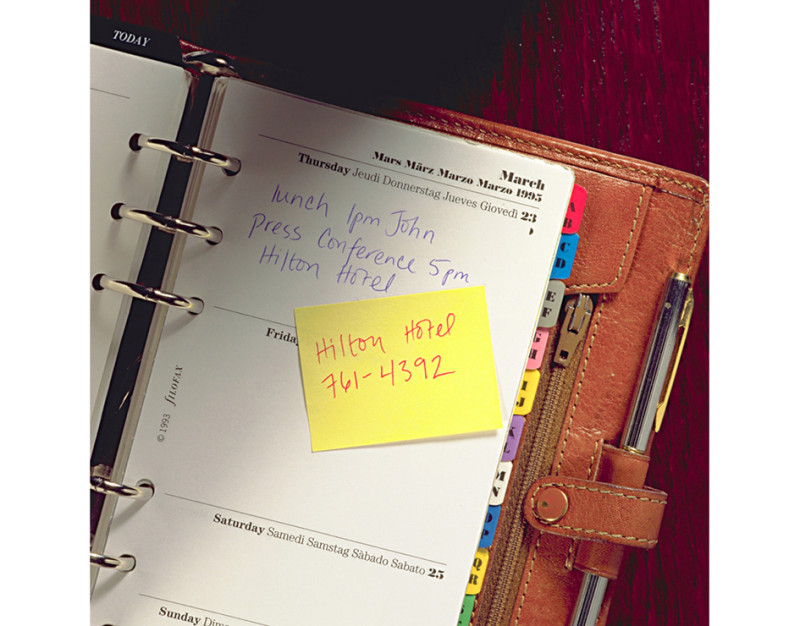 TODAY
March
Mars März Marzo Marzo 1995
Thursday Jeudi Donnerstag Jueves Giovedì 23
lunch 1pm John
Press Conference 5pm
Hilton Hotel
Hilton Hotel
761-4392
Friday
© 1993 fILOFAX
Saturday Samedi Samstag Sàbado Sabato 25
Sunday Dim
A
B
C
D
E
F
G
H
I
J
K
L
M
N
O
P
Q
R